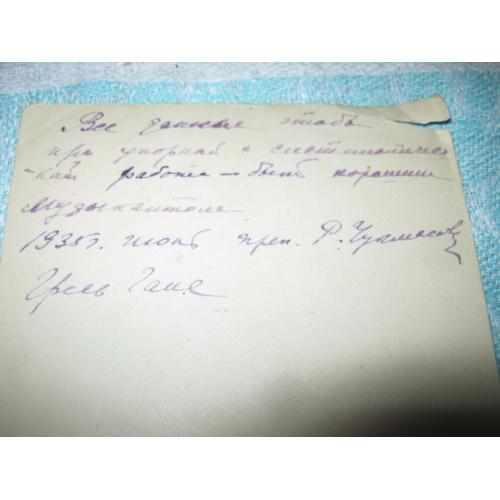 Все данные чтобы
при упорной и систематичес-
-кой работе – быть хорошим
музыкантом
1935г. июнь преп. Р.
Гресь Гале